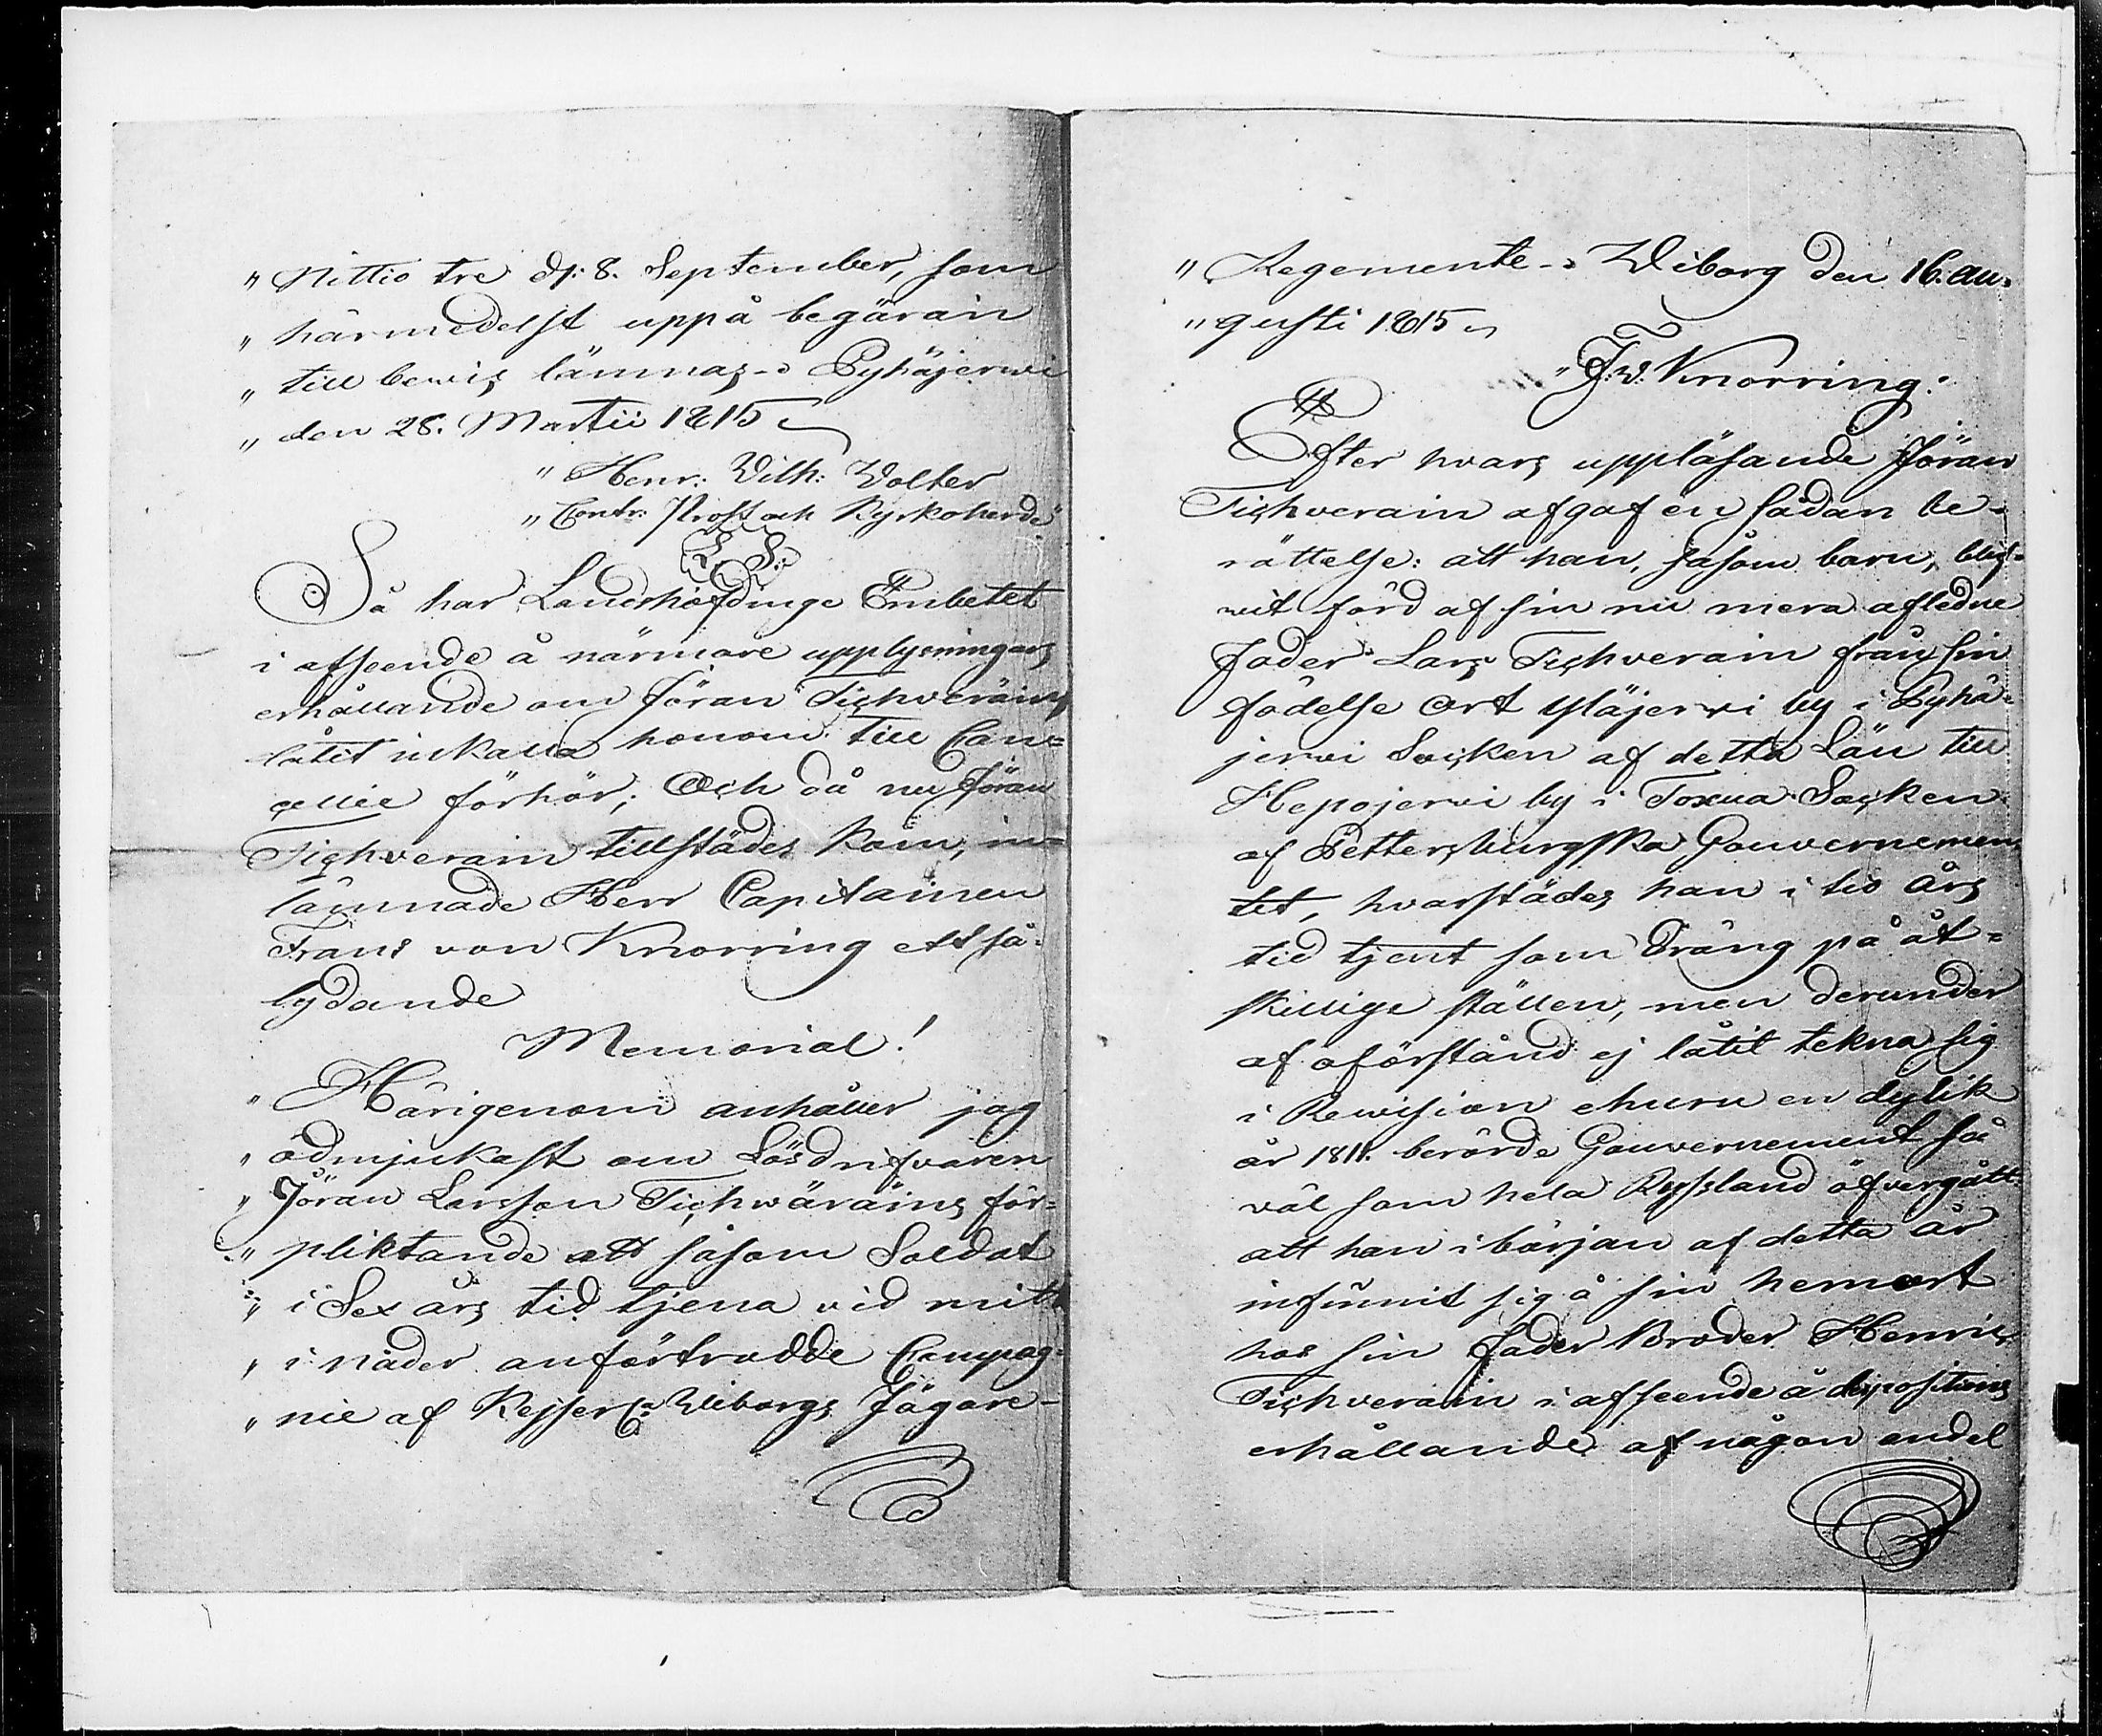 " Nittio tre d: 8. September, som
" härmedelst uppå begäran
" till bewis lämnas - Pyhäjerwi
" den 28. Martii 1815
" Henr: Wilh: Wolter
" Contr: Prost och Kyrkoherde
L. S.
Så har Landshöfdinge Embetet
i afseende å närmare upplysningars
erhållande om Jöran Tichveräins
låtit inkalla honom till Can=
cellie förhör; Och då nu Jöran
Tichverain tillstädes kom, in=
lämnade Herr Capitainen
Frans von Knorring ett så=
lydande
Memorial!
" Härigenom anhåller jag
" ödmjukast om Lösdrifvaren
" Jöran Larsson Tichwäräins för=
" pliktande att såsom Soldat
" i Sex års tid tjena vid mitt
" i nåder anförtrodde Compag=
" nie af Kejserl: Wiborgs Jägare-
" Regemente - Wiborg den 16. Au=
" gusti 1815
" F: v: Knorring:
Efter hvars uppläsande Jöran
Tichverain afgaf en sådan be=
rättelse: att han, såsom barn, blif=
wit förd af sin nu mera afledne
Fader Lars Tichverain från sin
födelse ort Yläjerwi by i Pyhä=
jerwi Socken af detta Län till
Hepojerwi by i Toxua Socken
af Pettersburgska Gouvernemen
tet, hvarstädes han i tio års
tid tjent som Dräng på åt=
skillige ställen, men derunder
af oförstånd ej låtit tekna sig
i Rewision ehuru en dylik
år 1811. berörde Gouvernement så
väl som hela Ryssland öfvergått
att han i början af detta år
infunnit sig å sin hemort
hos sin Fader Broder Henric
Tichverain i afseende å dispositions
erhållande af någon andel